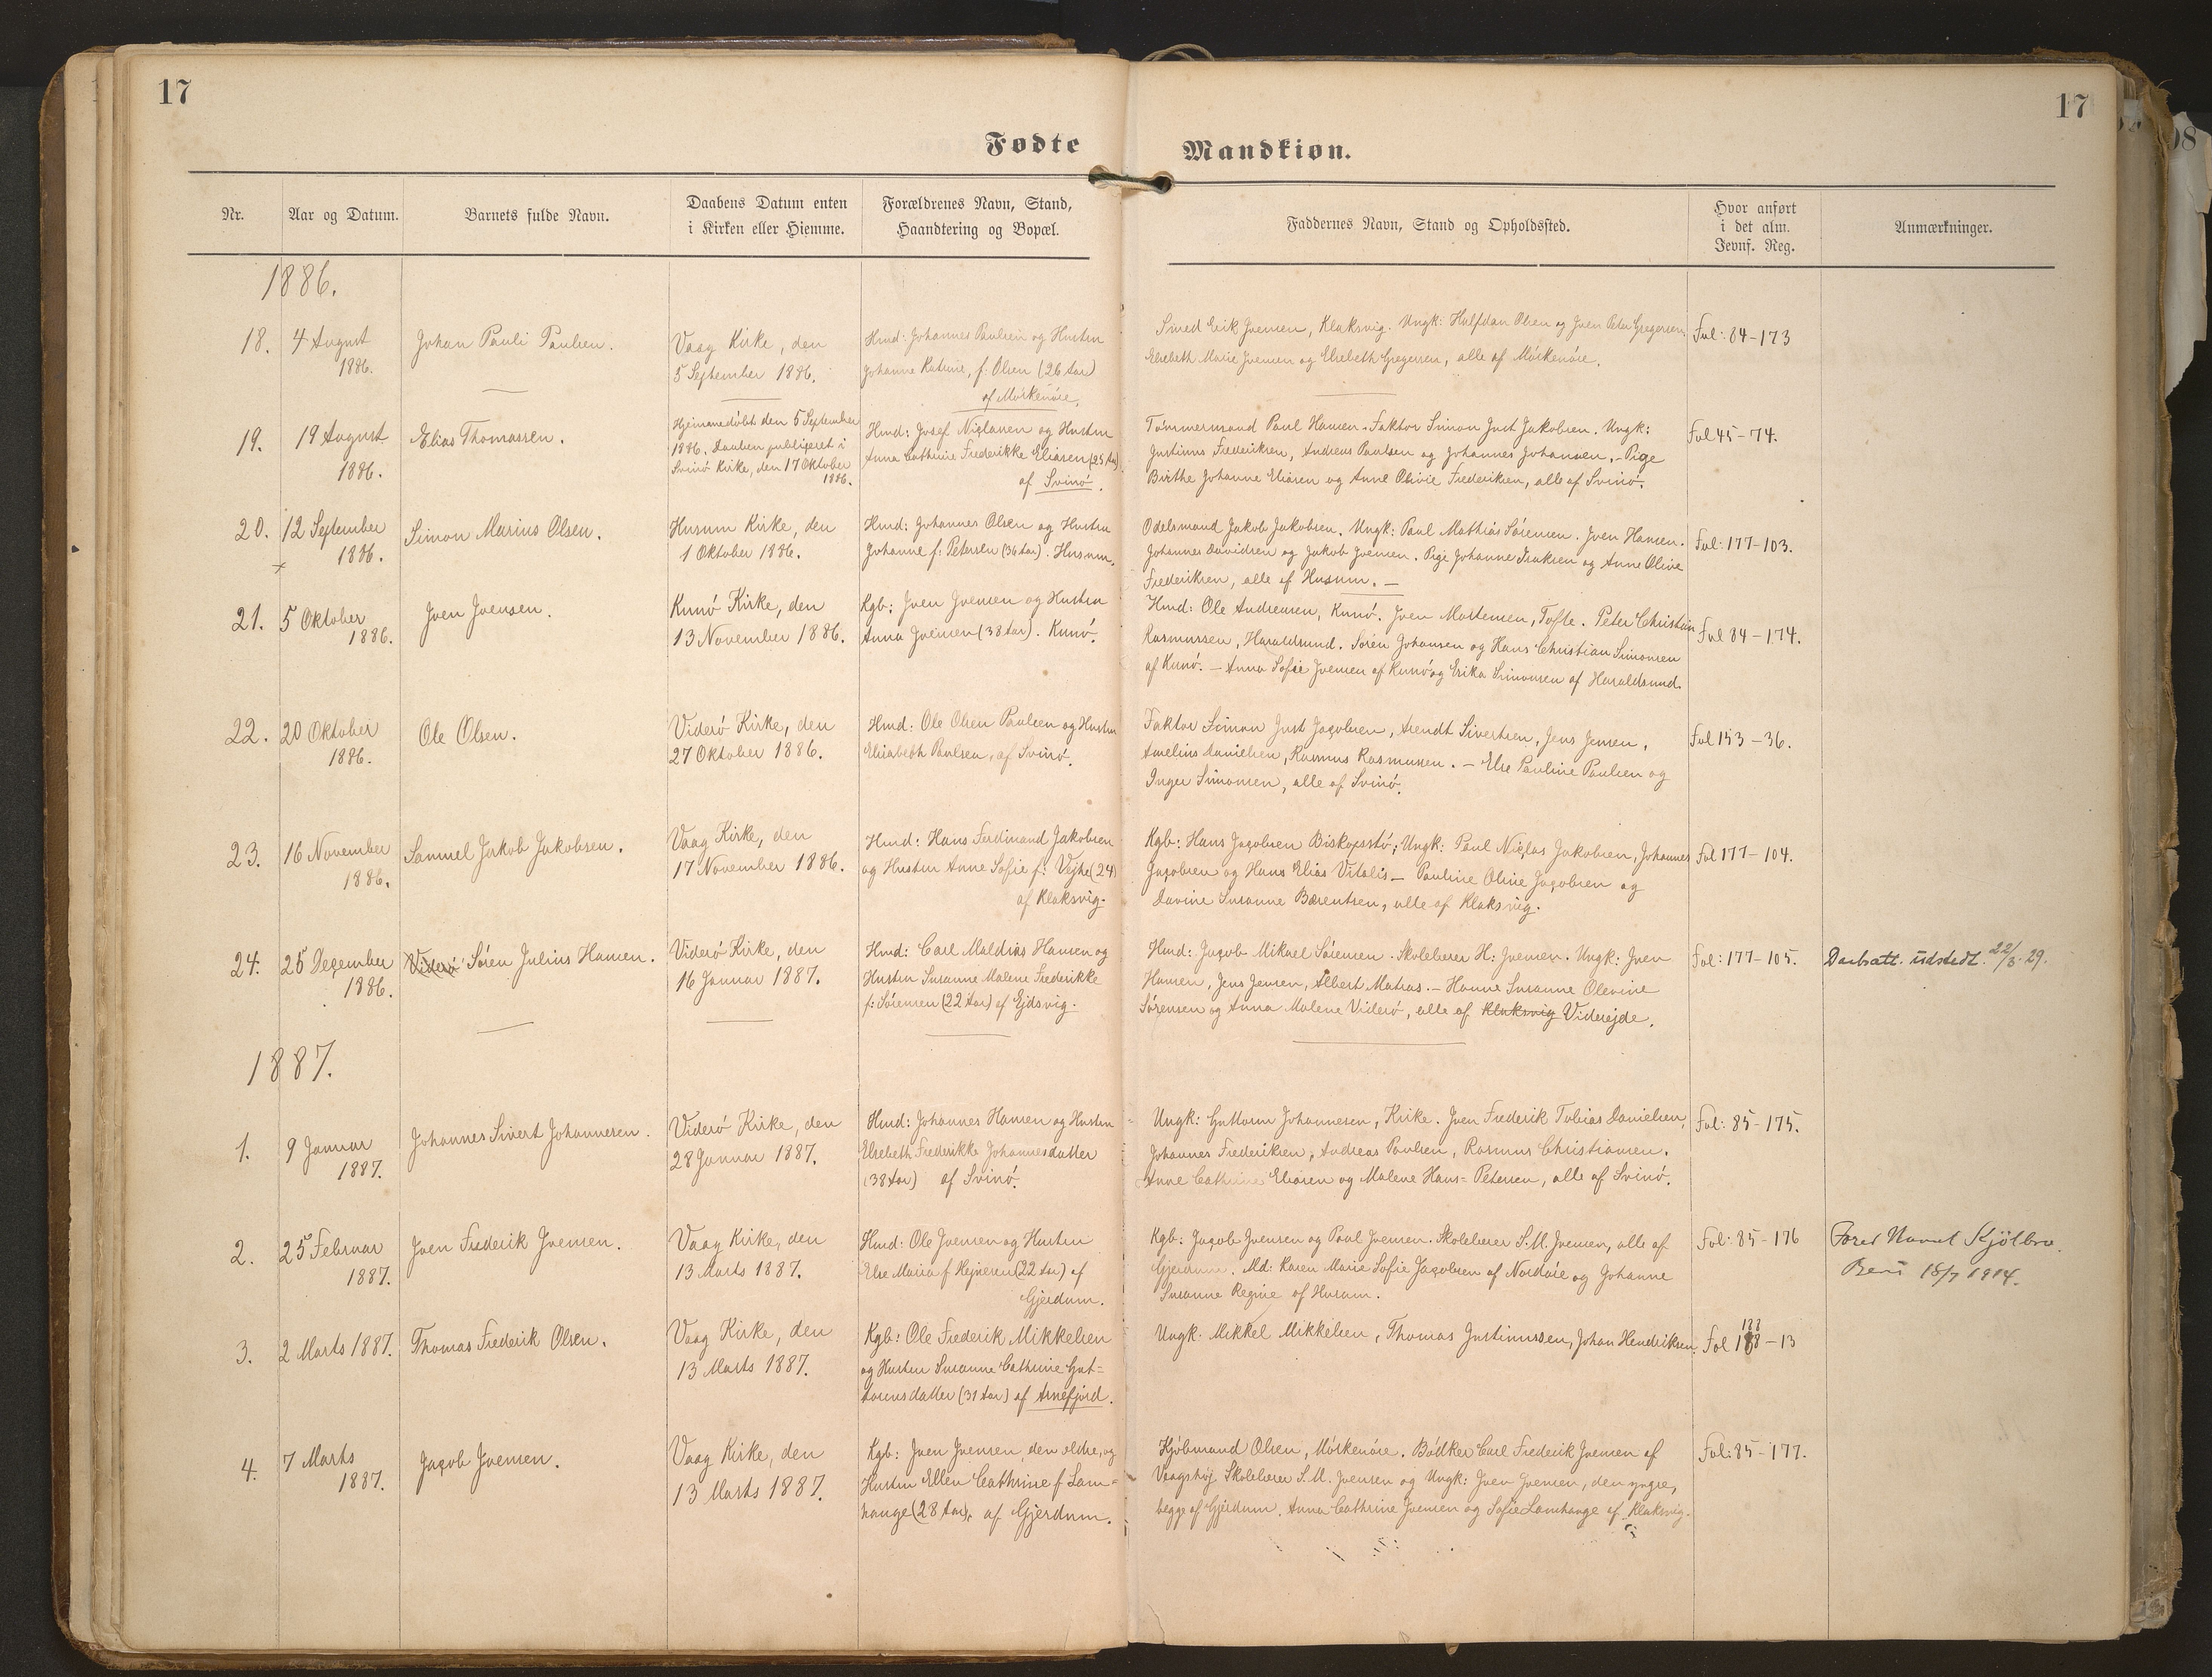 17
17
Fødte
Mandkiøn.
Nr.
Aar og Datum.
Barnets fulde Navn.
Daabens Datum enten
i Kirken eller Hiemme.
Forældrenes Navn, Stand,
Haandtering og Bopæl.
Faddernes Navn, Stand og Opholdssted.
Hvor anført
i det alm.
Jevnf. Reg.
Anmærkninger.
1886.
18.
4 August
1886.
Johan Pauli Paulsen.
Vaag Kirke, den
5 September 1886.
Hmd: Johannes Paulsen og Hustru
Johanne Katrine, f. Olsen (26 Aar)
af Mörkenöre.
Smed Erik Joensen, Klaksvig. Ungk: Halfdan Olsen og Joen Peter Gregersen,
Elsebeth Marie Joensen og Elsebeth Gregersen, alle af Mörkenöre.
Fol: 84-173
19.
19 August
1886.
Elias Thomassen.
Hjemmedöbt den 5 September
1886. Daaben publiceret i
Svinö Kirke, den 17 Oktober
1886.
Hmd: Josef Niclasen og Hustru
Anna Cathrine Frederikke Eliasen (25 Aar)
af Svinö.
Tömmermand Paul Hansen. Faktor Simon Just Jakobsen. Ungk:
Justinus Frederiksen, Andreas Paulsen og Johannes Johansen. - Pige
Birthe Johanne Eliasen og Anne Olivie Frederiksen, alle af Svinö.
Fol 45-74.
20.
12 September
1886.
Simon Marius Olsen.
Husum Kirke, den
1 Oktober 1886.
Hmd: Johannes Olsen og Hustru
Johanne f. Petersen (36 Aar). Husum.
Odelsmand Jakob Jakobsen. Ungk: Paul Mathias Sörensen. Joen Hansen.
Johannes Davidsen og Jakob Joensen. Pige Johanne Isaksen og Anne Olive
Frederiksen, alle af Husum. -
Fol: 177-103.
21.
5 Oktober
1886.
Joen Joensen.
Kunö Kirke, den
13 November 1886.
Kgb: Joen Joensen og Hustru
Anna Joensen (38 Aar). Kunö.
Hmd: Ole Andreasen, Kunö. Joen Mortensen, Tofte. Peter Christian
Rasmussen, Haraldsund. Sören Johansen og Hans Christian Simonsen
af Kunö. - Anna Sofie Joensen af Kunö og Erika Simonsen af Haraldsund.
Fol 84-174.
22.
20 Oktober
1886.
Ole Olsen.
Viderö Kirke, den
27 Oktober 1886.
Hmd: Ole Olsen Paulsen og Hustru
Elisabeth Paulsen, af Svinö.
Faktor Simon Just Jacobsen, Arendt Sivertsen, Jens Jensen,
Amelius Danielsen, Rasmus Rasmussen. - Else Pauline Paulsen og
Inger Simonsen, alle af Svinö.
Fol 153-36.
23.
16 November
1886.
Samuel Jakob Jakobsen.
Vaag Kirke, den
17 November 1886.
Hmd: Hans Ferdinand Jakobsen
og Hustru Anne Sofie f. Vejhe (24)
af Klaksvig.
Kgb: Hans Jacobsen Biskopsstö; Ungk: Paul Niclas Jakobsen, Johannes
Jacobsen og Hans Elias Vitalis - Pauline Oline Jacobsen og
Davine Susanne Bærentsen, alle af Klaksvig.
Fol 177-104.
24.
25 December
1886.
Viderö Sören Julius Hansen.
Viderö Kirke, den
16 Januar 1887.
Hmd: Carl Maldvis Hansen og
Hustru Susanne Malene Frederikke
f. Sörensen (22 Aar) af Ejdsvig.
Hmd: Jacob Mikael Sörensen. Skolelærer H: Joensen. Ungk: Joen
Hansen, Jens Jensen, Albert Matras. - Hanne Susanne Olevine
Sörensen og Anna Malene Viderö, alle af Klaksvig Viderejde.
Fol: 177-105.
Daabsatt. udstedt 22/3. 29.
1887.
1.
9 Januar
1887.
Johannes Sivert Johannesen.
Viderö Kirke, den
28 Januar 1887.
Hmd: Johannes Hansen og Hustru
Elsebeth Frederikke Johannesdatter
(38 Aar) af Svinö.
Ungk: Guttorm Johannesen, Kirke. Joen Frederik Tobias Danielsen,
Johannes Frederiksen, Andreas Paulsen, Rasmus Christiansen.
Anne Cathrine Eliasen og Malene Hans-Petersen, alle af Svinö.
Fol: 85-175.
2.
25 Februar
1887.
Joen Frederik Joensen.
Vaag Kirke, den
13 Marts 1887.
Hmd: Ole Joensen og Hustru
Else Maria f Hejnesen (22 Aar) af
Gjerdum.
Kgb: Jacob Joensen og Poul Joensen. Skolelærer S. M. Joensen, alle af
Gjerdum. Md: Karen Marie Sofie Jacobsen af Nordöre og Johanne
Susanne Regine af Husum.
Fol: 85-176
Fører Navnet Kjölbro.
Bev: 18/7 1914.
3.
2 Marts 1887.
Thomas Frederik Olsen.
Vaag Kirke, den
13 Marts 1887.
Kgb: Ole Frederik Mikkelsen
og Hustru Susanne Cathrine Gut-
tormsdatter (31 Aar) af Arnefjord.
Ungk. Mikkel Mikkelsen, Thomas Justinussen, Johan Hendriksen.
188
Fol 188-13
4.
7 Marts
1887.
Jacob Joensen.
Vaag Kirke, den
13 Marts 1887.
Kgb: Joen Joensen, den ældre, og
Hustru Ellen Cathrine f Lam-
hauge (28 Aar), af Gjerdum.
Kjöbmand Olsen, Mörkenöre. Bödker Carl Frederik Joensen af
Vaagshöj Skolelærer S. M. Joensen og Ungk: Joen Joensen, den yngre,
begge af Gjerdum. Anna Cathrine Joensen og Sofie Lamhauge af Klaksvig.
Fol: 85-177.